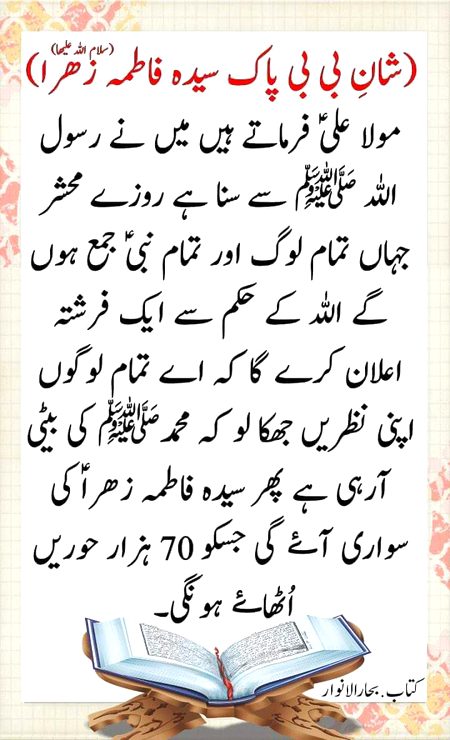 (شانِ بی بی پاک سیدہ فاطمہ زھرا (سلام اللہ علیھا))
مولا علیؑ فرماتے ہیں میں نے رسول
اللہ ﷺ سے سنا ہے روزے محشر
جہاں تمام لوگ اور تمام نبیؑ جمع ہوں
گے اللہ کے حکم سے ایک فرشتہ
اعلان کرے گا کہ اے تمام لوگوں
اپنی نظریں جھکا لو کہ محمدﷺ کی بیٹی
آرہی ہے پھر سیدہ فاطمہ زھراؑ کی
سواری آئے گی جسکو 70 ہزار حوریں
اُٹھائے ہونگی۔
کتاب. بحارالانوار